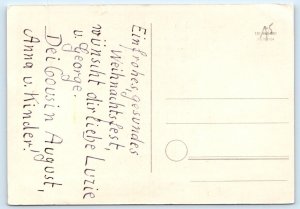 Ein frohes, gesundes
Weihnachtsfest,
wünscht dir liebe Luzie
u. George.
Dei Cousin August,
Anna u. Kinder!